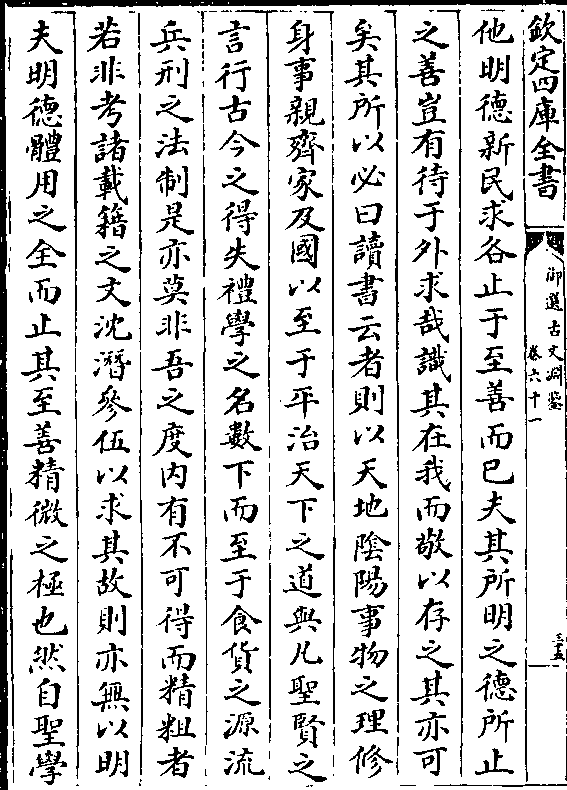 欽定四庫全書
御選古文淵鑒
卷六十一
三五
他明德新民求各止于至善而已夫其所明之德所止
之善豈有待于外求哉識其在我而敬以存之其亦可
矣其所以必曰讀書云者則以天地陰陽事物之理修
身事親齊家及國以至于平治天下之道與凡聖賢之
言行古今之得失禮學之名數下而至于食貨之源流
兵刑之法制是亦莫非吾之度内有不可得而精粗者
若非考諸載籍之文沈潛參伍以求其故則亦無以明
夫明德體用之全而止其至善精微之極也然自聖學